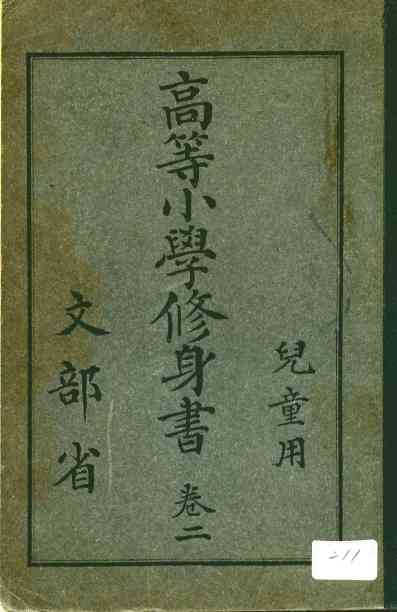 兒童用
高等小學修身書 卷二
文部省
211